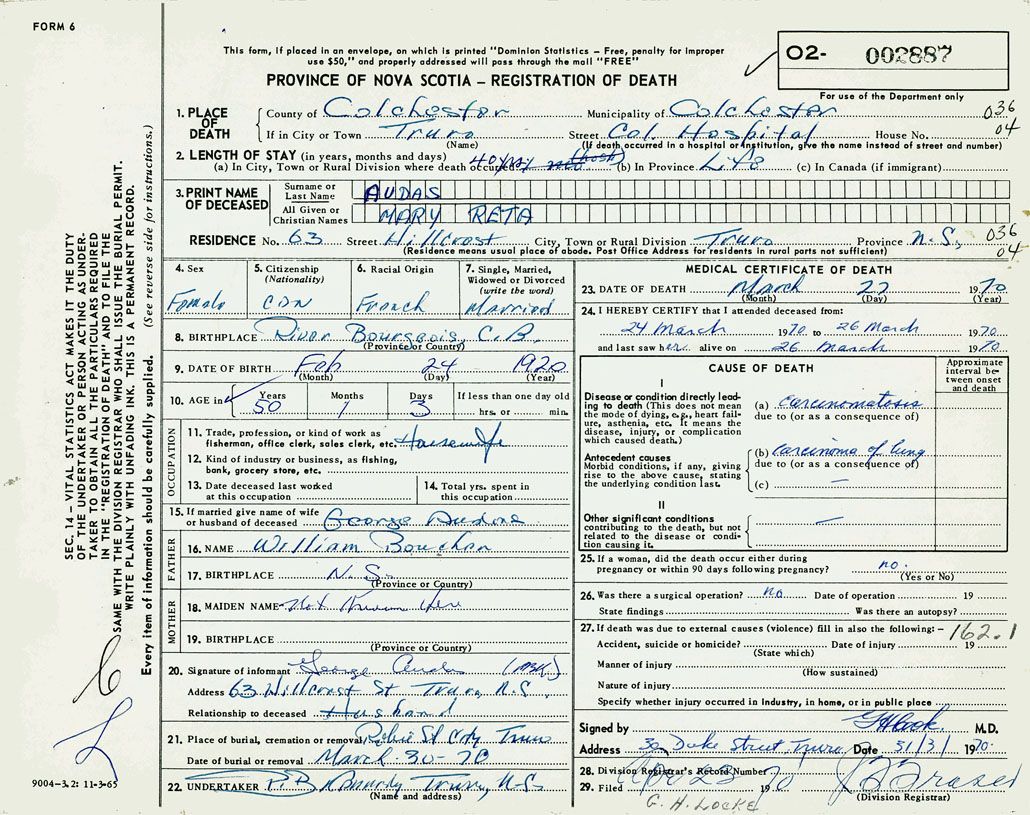 FORM 6
This form, if placed in an envelope, on which is printed "Dominion Statistics – Free, penalty for improper
use $50," and properly addressed will pass through the mail "FREE"
PROVINCE OF NOVA SCOTIA – REGISTRATION OF DEATH
02- 002887
For use of the Department only
SEC. 14 – VITAL STATISTICS ACT MAKES IT THE DUTY
OF THE UNDERTAKER OR PERSON ACTING AS UNDER-
TAKER TO OBTAIN ALL THE PARTICULARS REQUIRED
IN THE "REGISTRATION OF DEATH" AND TO FILE THE
SAME WITH THE DIVISION REGISTRAR WHO SHALL ISSUE THE BURIAL PERMIT.
WRITE PLAINLY WITH UNFADING INK. THIS IS A PERMANENT RECORD.
Every item of information should be carefully supplied. (See reverse side for instructions.)
1. PLACE OF DEATH
County of Colchester Municipality of Colchester 036
If in City or Town Truro Street Col. Hospital House No. 04
(Name) (If death occurred in a hospital or institution, give the name instead of street and number)
2. LENGTH OF STAY (in years, months and days)
(a) In City, Town or Rural Division where death occurred 40 yrs (b) In Province Life (c) In Canada (if immigrant)
3. PRINT NAME OF DECEASED
Surname or Last Name AUDAS
All Given or Christian Names MARY RETA
RESIDENCE No. 63 Street Hillcrest City, Town or Rural Division Truro Province N.S. 036
(Residence means usual place of abode. Post Office Address for residents in rural parts not sufficient) 04
4. Sex Female
5. Citizenship (Nationality) CDN
6. Racial Origin French
7. Single, Married, Widowed or Divorced (write the word) Married
8. BIRTHPLACE River Bourgeois, C.B.
(Province or Country)
9. DATE OF BIRTH Feb 24 1920
(Month) (Day) (Year)
10. AGE in Years 50 Months 1 Days 3 If less than one day old hrs. or min.
OCCUPATION
11. Trade, profession, or kind of work as
fisherman, office clerk, sales clerk, etc. Housewife
12. Kind of industry or business, as fishing,
bank, grocery store, etc.
13. Date deceased last worked at this occupation
14. Total yrs. spent in this occupation
15. If married give name of wife
or husband of deceased George
FATHER
16. NAME William
17. BIRTHPLACE N.S.
(Province or Country)
MOTHER
18. MAIDEN NAME Not Known Here
19. BIRTHPLACE
(Province or Country)
20. Signature of informant George
Address 63 Hillcrest St Truro, N.S.
Relationship to deceased Husband
21. Place of burial, cremation or removal Robie St Truro
Date of burial or removal March-30-70
22. UNDERTAKER Truro, N.S.
(Name and address)
9004-3.2: 11-3-65
MEDICAL CERTIFICATE OF DEATH
23. DATE OF DEATH March 27 1970
(Month) (Day) (Year)
24. I HEREBY CERTIFY that I attended deceased from:
24 March 1970 to 26 March 1970
and last saw her alive on 26 March 1970
CAUSE OF DEATH
Approximate interval between onset and death
I
Disease or condition directly lead-
ing to death (This does not mean
the mode of dying, e.g., heart fail-
ure, asthenia, etc. It means the
disease, injury, or complication
which caused death.)
(a) carcinomatosis
due to (or as a consequence of)
Antecedent causes
Morbid conditions, if any, giving
rise to the above cause, stating
the underlying condition last.
(b) carcinoma of lung
due to (or as a consequence of)
(c) —
II
Other significant conditions
contributing to the death, but not
related to the disease or condi-
tion causing it.
—
25. If a woman, did the death occur either during
pregnancy or within 90 days following pregnancy? no.
(Yes or No)
26. Was there a surgical operation? no Date of operation 19
State findings Was there an autopsy?
27. If death was due to external causes (violence) fill in also the following:– 162.1
Accident, suicide or homicide? Date of injury 19
(State which)
Manner of injury
(How sustained)
Nature of injury
Specify whether injury occurred in Industry, in home, or in public place
Signed by M.D.
Address Duke Street Truro Date 31/3/1970.
28. Division Registrar's Record Number
29. Filed 1970
(Division Registrar)
G. H. LOCKE